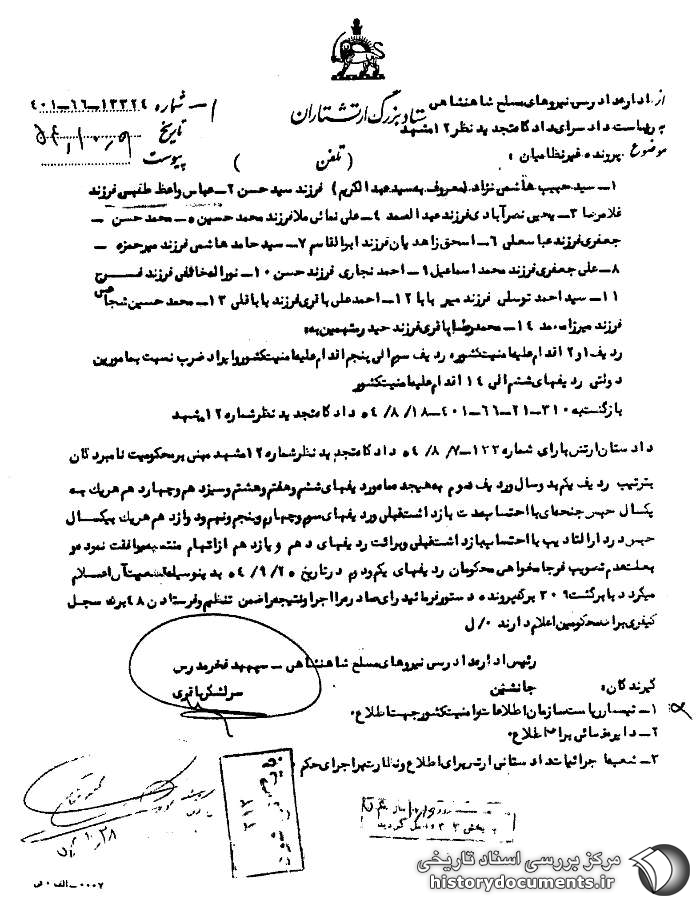 ستاد بزرگ ارتشتاران
از: اداره دادرسی نیروهای مسلح شاهنشاهی
به ریاست دادسرای دادگاه تجدید نظر ۱۲ مشهد
موضوع: پرونده غیرنظامیان:
شماره ۱۳۳۲۴-۶۶-۴۰۱
تاریخ
پیوست
( تلفن )
۱- سید حبیب هاشمی نژاد (معروف به سید عبدالکریم) فرزند سید حسن ۲- عباس واعظ طبسی فرزند
غلامرضا ۳- یحیی نصرآبادی فرزند عبدالصمد ۴- علی نمائی ملا فرزند محمد حسین ۵- محمد حسن
جعفری فرزند عباسعلی ۶- اسحق زاهدیان فرزند ابوالقاسم ۷- سید حامد هاشمی فرزند میرحمزه
۸- علی جعفری فرزند محمد اسماعیل ۹- احمد نجاری فرزند حسن ۱۰- نوراله خاقی فرزند فرج
۱۱- سید احمد توسلی فرزند میر بابا ۱۲- احمدعلی باقری فرزند باباقلی ۱۳- محمد حسین شجاعی
فرزند میرزا محمد ۱۴- محمدرضا باقری فرزند حیدر متهمین به:
ردیف ۱ و ۲ اقدام علیه امنیت کشور، ردیف سوم الی پنجم اقدام علیه امنیت کشور و ایراد ضرب نسبت بمامورین
دولتی ردیفهای ششم الی ۱۴ اقدام علیه امنیت کشور
بازگشت به ۳۱۰-۲۱-۶۶-۴۰۱-۵۴/۸/۱۸ دادگاه تجدید نظر شماره ۱۲ مشهد
دادستان ارتش با رای شماره ۱۳۳-۵۴/۸/۷ دادگاه تجدید نظر شماره ۱۲ مشهد مبنی بر محکومیت نامبردگان
بترتیب ردیف یکم بدو سال و ردیف دوم به هیجده ماه و ردیفهای ششم و هفتم و هشتم و سیزدهم و چهاردهم هر یک به
یکسال حبس جنحه‌ای با احتساب مدت بازداشت قبلی و ردیفهای سوم و چهارم و پنجم و نهم و دوازدهم هر یک بیکسال
حبس در دارالتادیب با احتساب بازداشت قبلی و برائت ردیفهای دهم و یازدهم از اتهام منتسبه موافقت نموده و
بعلت عدم تصویب فرجامخواهی محکومان ردیفهای یکم و دوم در تاریخ ۵۴/۹/۲۵ بدینوسیله قطعیت آن اعلام
میگردد با برگشت ۳۰۹ برگ پرونده دستور فرمائید رای صادره را اجرا و نتیجه را ضمن تنظیم و فرستادن ۴۸ برگ سجل
کیفری برای محکومین اعلام دارند ۰/ ل
رئیس اداره دادرسی نیروهای مسلح شاهنشاهی - سپهبد فخر مدرس
جانشین سرلشکر باقری
گیرندگان:
۱- تیمسار ریاست سازمان اطلاعات و امنیت کشور جهت اطلاع
۲- دایره برای اطلاع
۳- شعبه جرائیات دادستانی ارتش برای اطلاع و نظارت بر اجرای حکم
۳۱۲
۱۰/۲۸
۰۰۰۷- الف - ش
مرکز بررسی اسناد تاریخی
historydocuments.ir